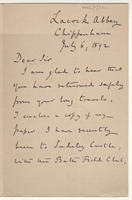 Lacock Abbey
Chippenham
July 6, 1892
Dear Sir
I am glad to hear that
you have returned safely
from your long travels.
I enclose a copy of my
paper. I have recently
been to Sudeley Castle,
with the Bath Field Club,